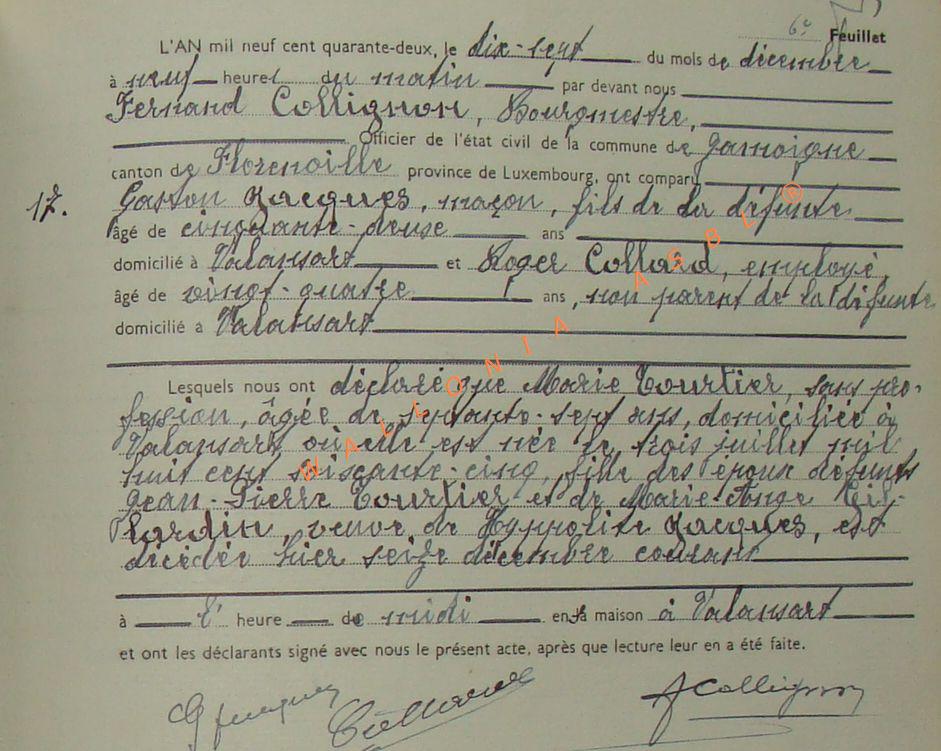 6e Feuillet
L'AN mil neuf cent quarante-deux, le dix-sept du mois de décembre
à neuf heures du matin par devant nous
Fernand Collignon, Bourgmestre,
Officier de l'état civil de la commune de Jamoigne
canton de Florenville province de Luxembourg, ont comparu
17. Gaston Jacques, maçon, fils de la défunte
âgé de cinquante-deux ans
domicilié à Valansart et Roger Collard, employé,
âgé de vingt-quatre ans, non parent de la défunte
domicilié à Valansart
Lesquels nous ont déclaré que Marie Tourtier, sans pro-
fession, âgée de septante-sept ans, domiciliée à
Valansart, où elle est née le trois juillet mil
huit cent soixante-cinq, fille des époux défunts
Jean-Pierre Tourtier et de Marie-Ange
veuve de Hyppolite Jacques, est
décédée hier seize décembre courant
à l' heure de midi en sa maison à Valansart
et ont les déclarants signé avec nous le présent acte, après que lecture leur en a été faite.
Collignon
WALLONIA ASBL ®